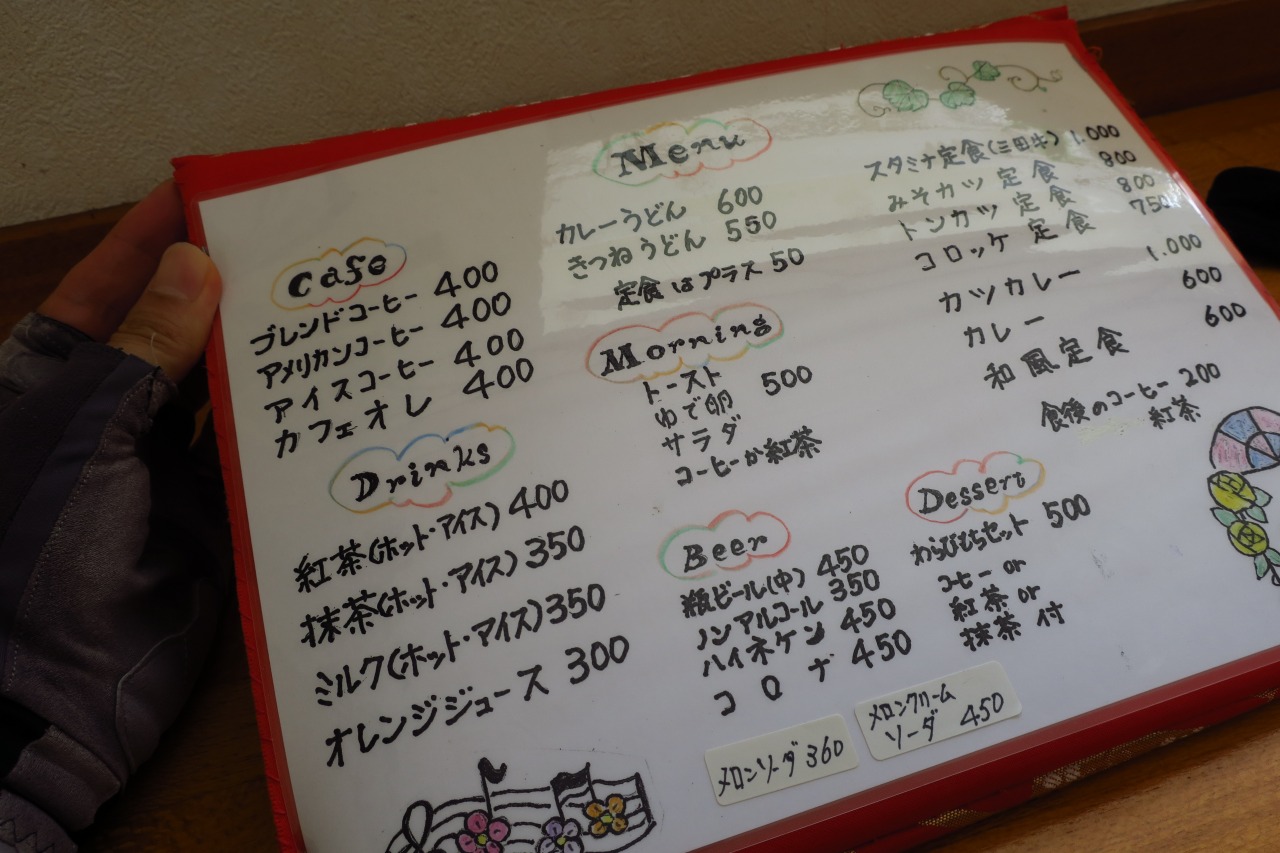 Cafe
ブレンドコーヒー 400
アメリカンコーヒー 400
アイスコーヒー 400
カフェオレ 400
Drinks
紅茶(ホット・アイス) 400
抹茶(ホット・アイス) 350
ミルク(ホット・アイス) 350
オレンジジュース 300
Menu
カレーうどん 600
きつねうどん 550
定食はプラス 50
Morning
トースト
ゆで卵 500
サラダ
コーヒーか紅茶
Beer
瓶ビール(中) 450
ノンアルコール 350
ハイネケン 450
コロナ 450
メロンソーダ 360
スタミナ定食(三田牛) 1.000
みそカツ定食 800
トンカツ定食 800
コロッケ定食 750
カツカレー 1.000
カレー 600
和風定食 600
食後のコーヒー 200
紅茶
Dessert
わらびもちセット 500
コヒー or
紅茶 or
抹茶 付
メロンクリーム
ソーダ 450